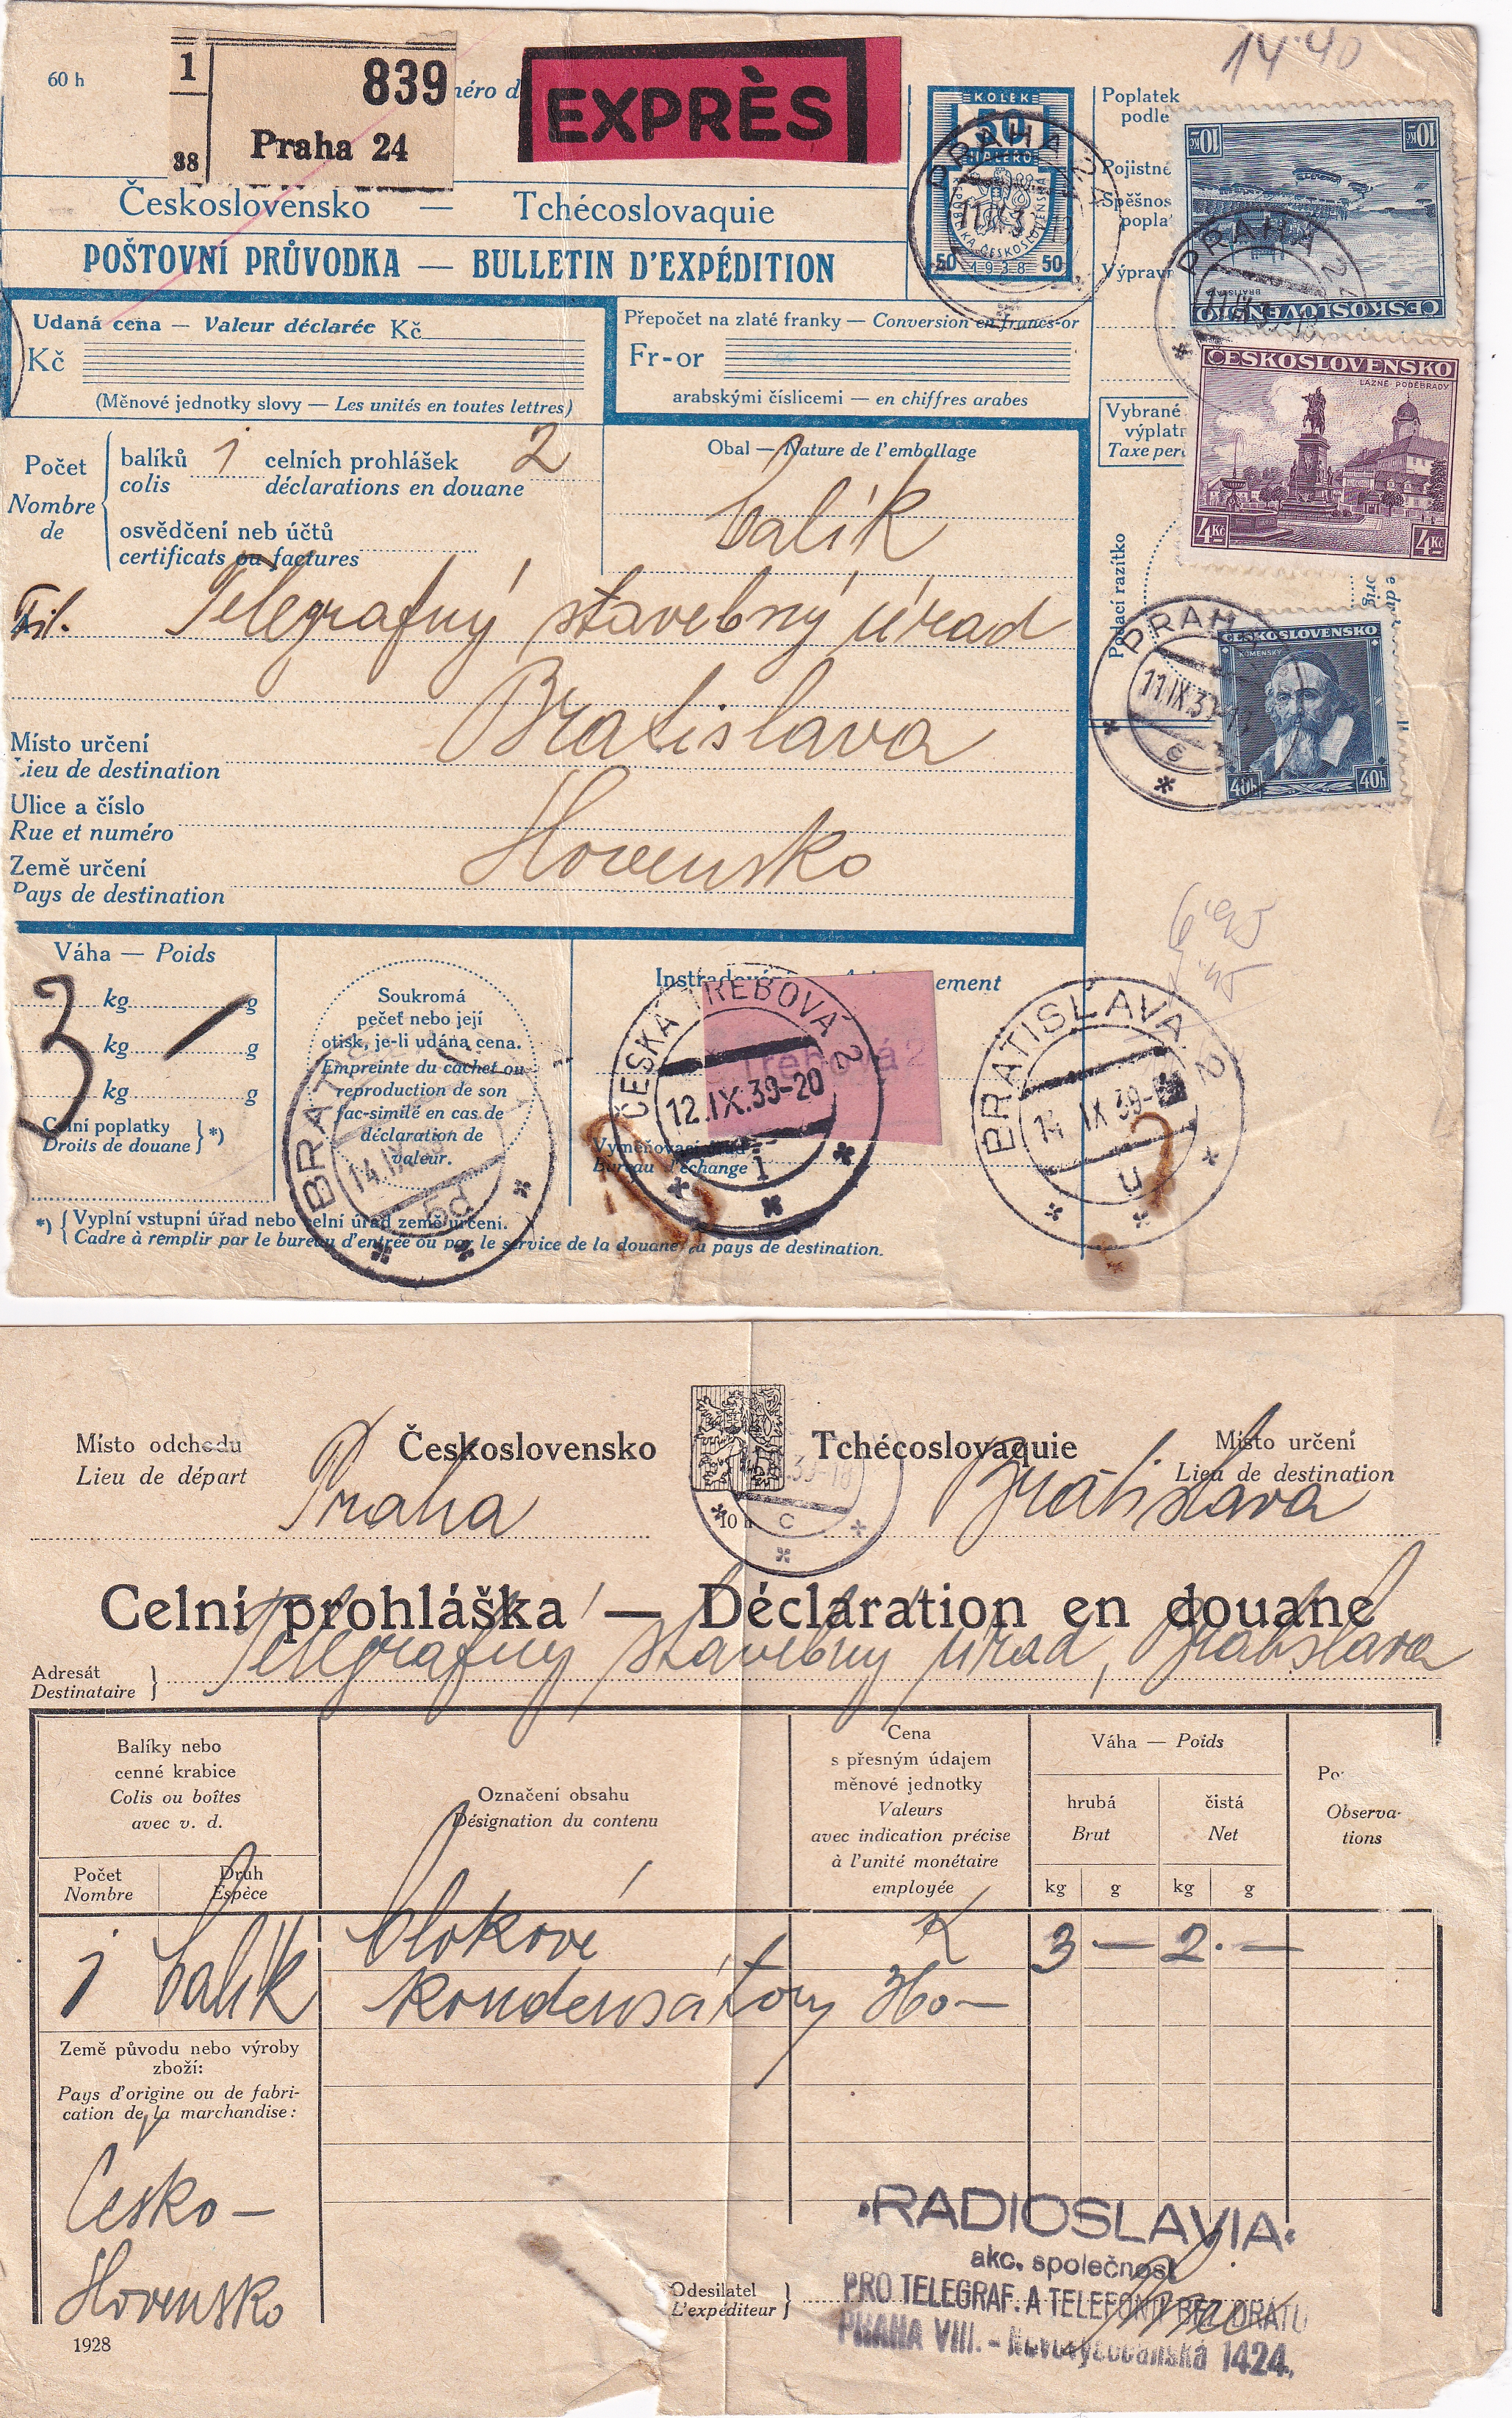 14·40
60 h
1
839
38
Praha 24
éro d
EXPRÈS
KOLEK
50
HALÉŘŮ
REPUBLIKA ČESKOSLOVENSKÁ
50 1938 50
PRAHA
Poplatek
podle
Pojistné
Spěšnos
popla
Výpravn
10 Kč
10 Kč
BRATISLAVA
ČESKOSLOVENSKO
PRAHA 2
Československo — Tchécoslovaquie
POŠTOVNÍ PRŮVODKA — BULLETIN D'EXPÉDITION
Udaná cena — Valeur déclarée Kč
Kč
(Měnové jednotky slovy — Les unités en toutes lettres)
Přepočet na zlaté franky — Conversion en francs-or
Fr-or
arabskými číslicemi — en chiffres arabes
Vybrané
výplatn
Taxe per
ČESKOSLOVENSKO
LÁZNĚ PODĚBRADY
4 Kč
4 Kč
Počet
Nombre
de
balíků 1 celních prohlášek 2
colis déclarations en douane
osvědčení neb účtů
certificats ou factures
Obal — Nature de l'emballage
balík
Podací razítko
Telegrafný stavebný úrad
Bratislava
Slovensko
Místo určení
Lieu de destination
Ulice a číslo
Rue et numéro
Země určení
Pays de destination
PRAHA
11.IX.39
c
ČESKOSLOVENSKO
KOMENSKÝ
40h
40h
Váha — Poids
kg g
kg g
kg g
3 —
Celní poplatky
Droits de douane } *)
Soukromá
pečeť nebo její
otisk, je-li udána cena.
Empreinte du cachet ou
reproduction de son
fac-similé en cas de
déclaration de
valeur.
BRATISLAVA
14.IX
5d
ement
Třebová 2
ČESKÁ TŘEBOVÁ 2
12.IX.39-20
1
Vyměňovací úřad
Bureau d'échange
BRATISLAVA 2
14 IX 39
u
*) { Vyplní vstupní úřad nebo celní úřad země určení.
Cadre à remplir par le bureau d'entrée ou par le service de la douane du pays de destination.
Místo odchodu
Lieu de départ
Praha
Československo
Tchécoslovaquie
Místo určení
Lieu de destination
Bratislava
10 h
39-18
c
Celní prohláška — Déclaration en douane
Adresát
Destinataire }
Telegrafný stavebný úrad, Bratislava
Balíky nebo
cenné krabice
Colis ou boîtes
avec v. d.
Počet
Nombre
Druh
Espèce
Označení obsahu
Désignation du contenu
Cena
s přesným údajem
měnové jednotky
Valeurs
avec indication précise
à l'unité monétaire
employée
Váha — Poids
hrubá
Brut
čistá
Net
kg g kg g
Po
Observa-
tions
1 balík blokové K 3 — 2 · —
kondensátory 360 —
Země původu nebo výroby
zboží:
Pays d'origine ou de fabri-
cation de la marchandise:
Česko-
Slovensko
1928
Odesílatel
L'expéditeur }
•RADIOSLAVIA•
akc. společnost
PRO TELEGRAF. A TELEFONII BEZ DRÁTU
PRAHA VIII. - Novovysočanská 1424.